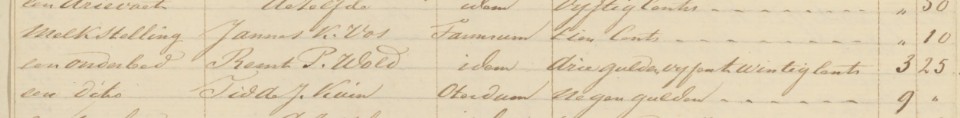 een drievoet dezelfde idem vyftig Cents „ 50
Melkstelling Jannes K. Vos Farmsum tien Cents „ 10
een onderbed Remt P. Wold idem drie gulden vyf en twintig Cents 3 25
een dito Tidde J. Kuin Oterdum Negen gulden 9 „